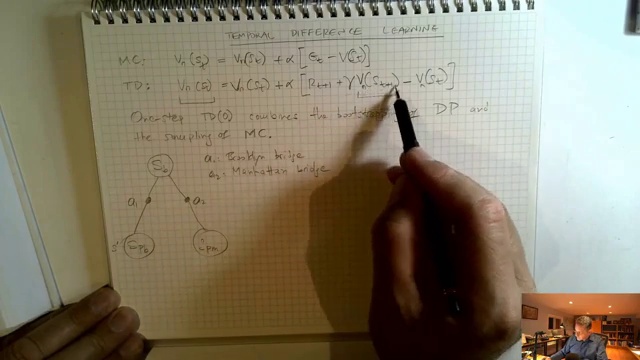 TEMPORAL DIFFERENCE LEARNING
MC: Vπ(St) = Vπ(St) + α [Gt − V(St)]
TD: Vπ(St) = Vπ(St) + α [Rt+1 + γVπ(St+1) − Vπ(St)]
One-step TD(0) combines the bootstrapping DP and
the sampling of MC.
S0
a1: Brooklyn bridge
a2: Manhattan bridge
a1
a2
s'